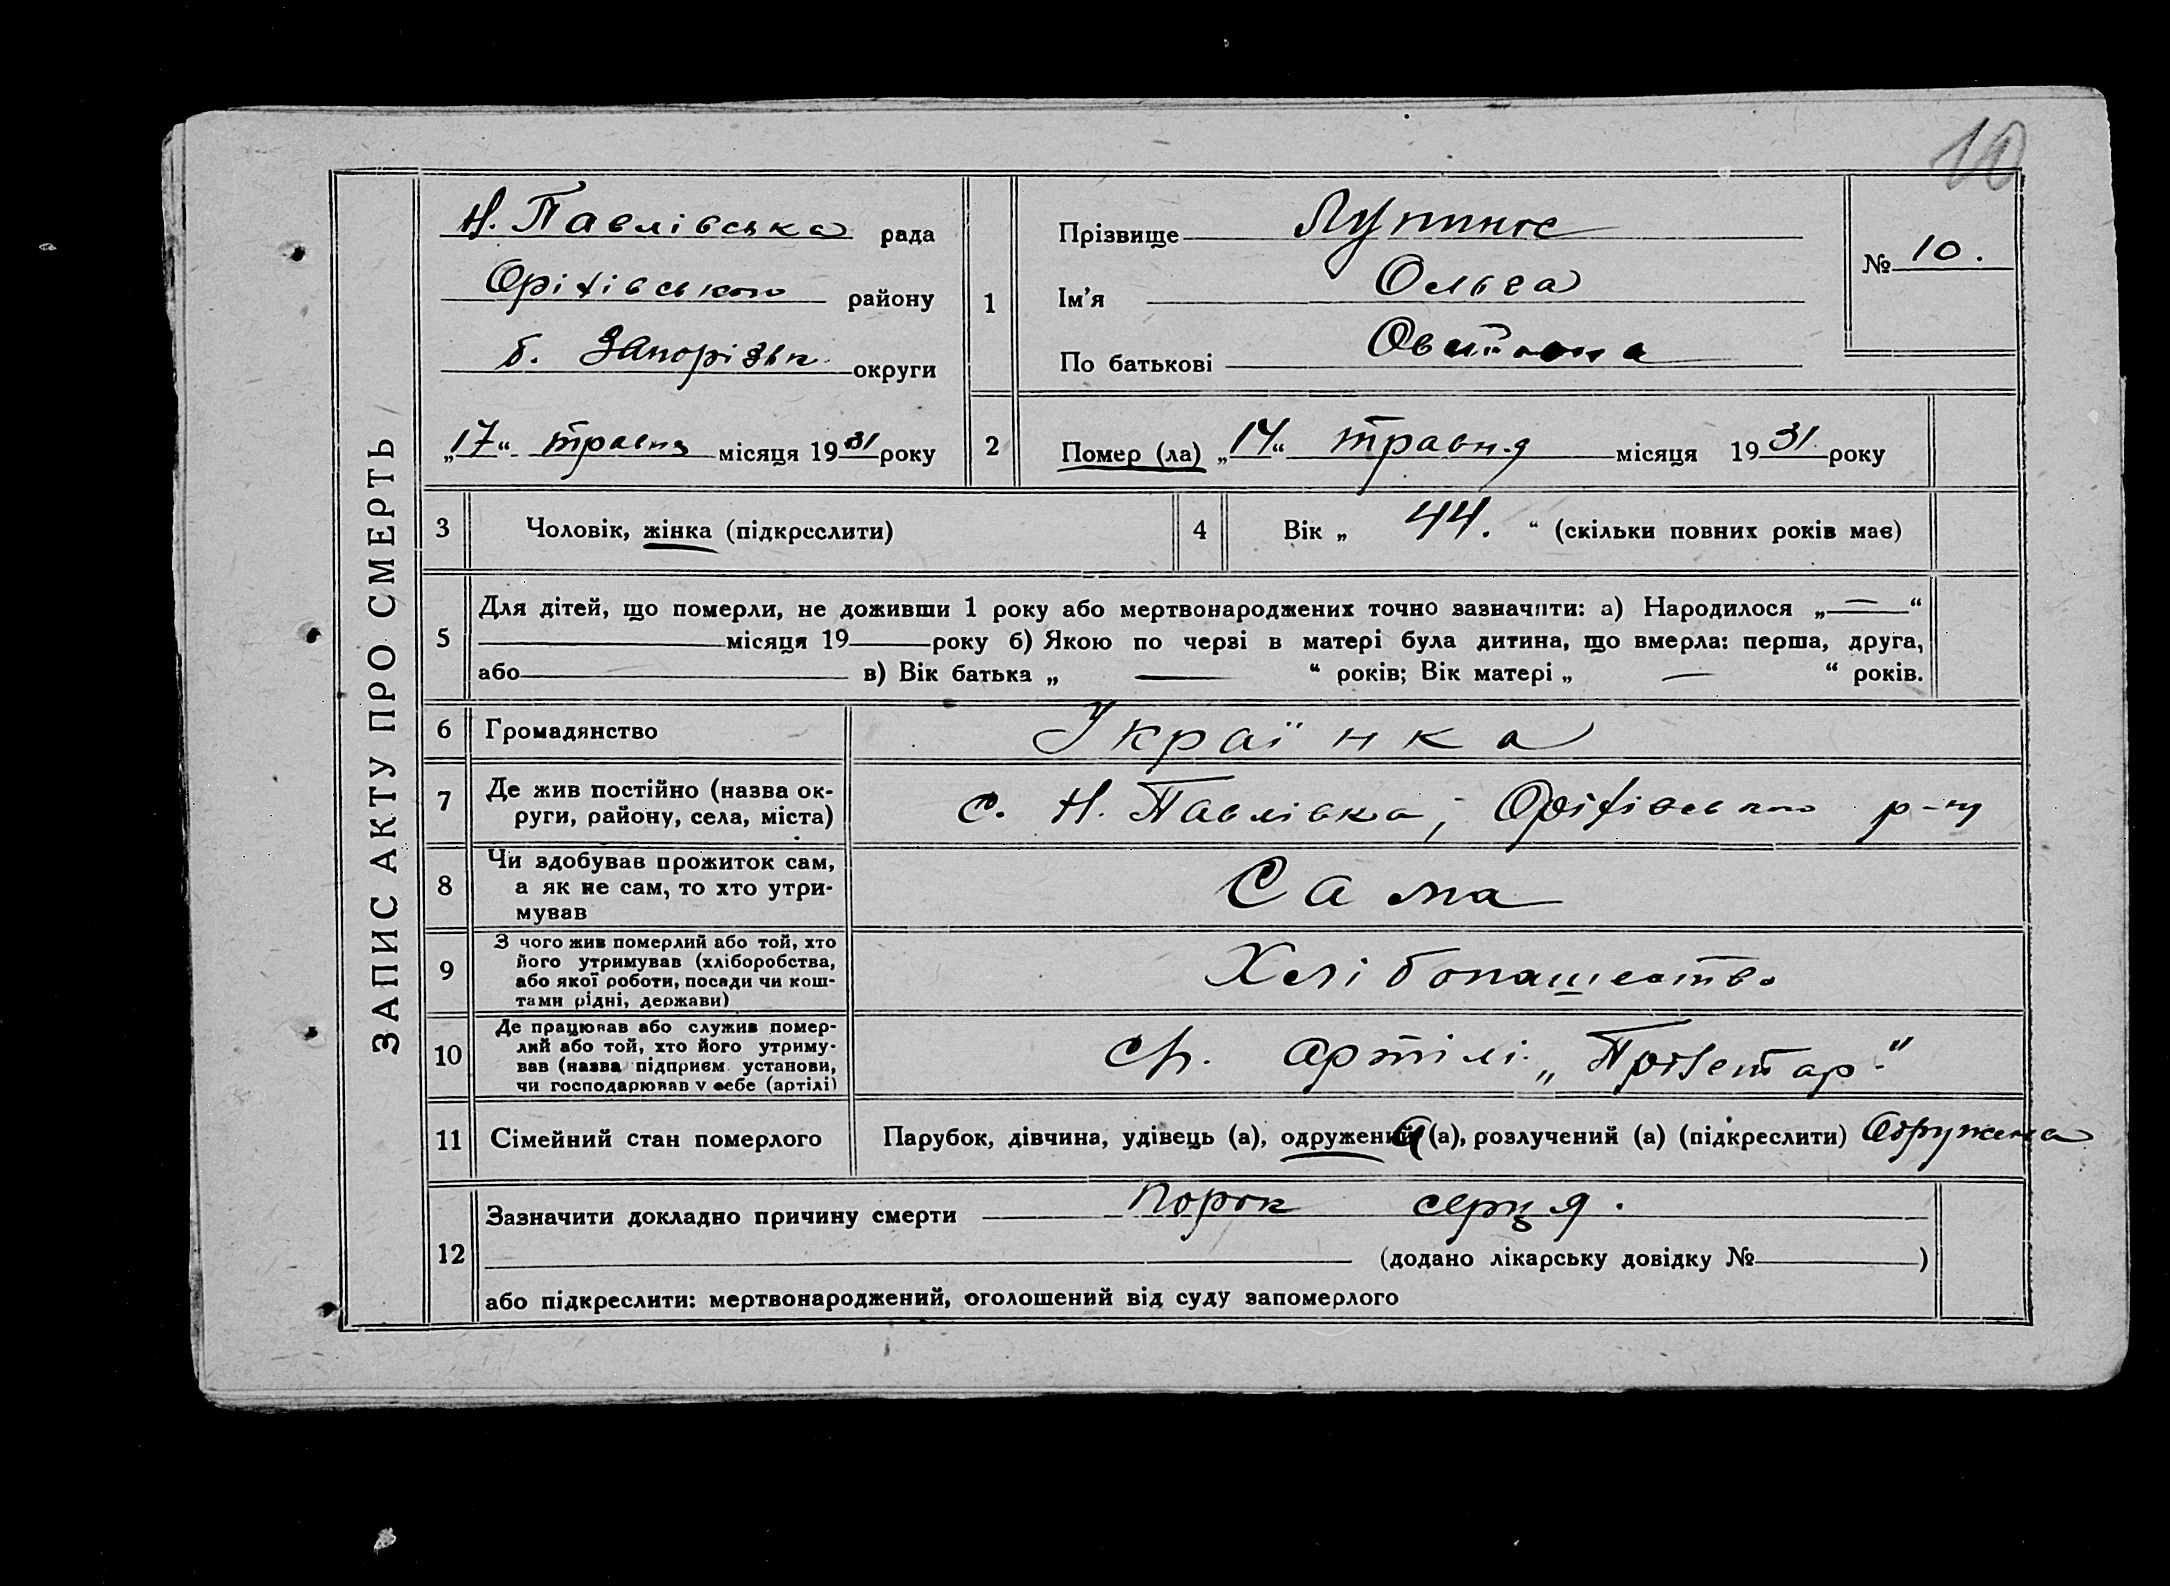 10
ЗАПИС АКТУ ПРО СМЕРТЬ
Н. Павлівська рада
Оріхівського району
б. Запорізьк. округи
„17“ травня місяця 1931 року
1
Прізвище Лупинос
Ім’я Ольга
По батькові
№ 10.
2
Помер (ла) „14“ травня місяця 1931 року
3 Чоловік, жінка (підкреслити)
4 Вік „ 44. “ (скільки повних років має)
5
Для дітей, що померли, не доживши 1 року або мертвонароджених точно зазначити: а) Народилося „—“
місяця 19 року б) Якою по черзі в матері була дитина, що вмерла: перша, друга,
або в) Вік батька „ — “ років; Вік матері „ — “ років.
6 Громадянство Українка
7 Де жив постійно (назва ок-
руги, району, села, міста)
с. Н. Павлівка, Оріхівського р-ну
8 Чи здобував прожиток сам,
а як не сам, то хто утри-
мував
Сама
9 З чого жив померлий або той, хто
його утримував (хліборобства,
або якої роботи, посади чи кош-
тами рідні, держави)
Хлібопашество
10 Де працював або служив помер-
лий або той, хто його утриму-
вав (назва підприєм. установи,
чи господарював у себе (артілі)
артілі „Пролетар“
11 Сімейний стан померлого Парубок, дівчина, удівець (а), одружений (а), розлучений (а) (підкреслити) Одружена
12
Зазначити докладно причину смерти порок серця.
(додано лікарську довідку № )
або підкреслити: мертвонароджений, оголошений від суду запомерлого